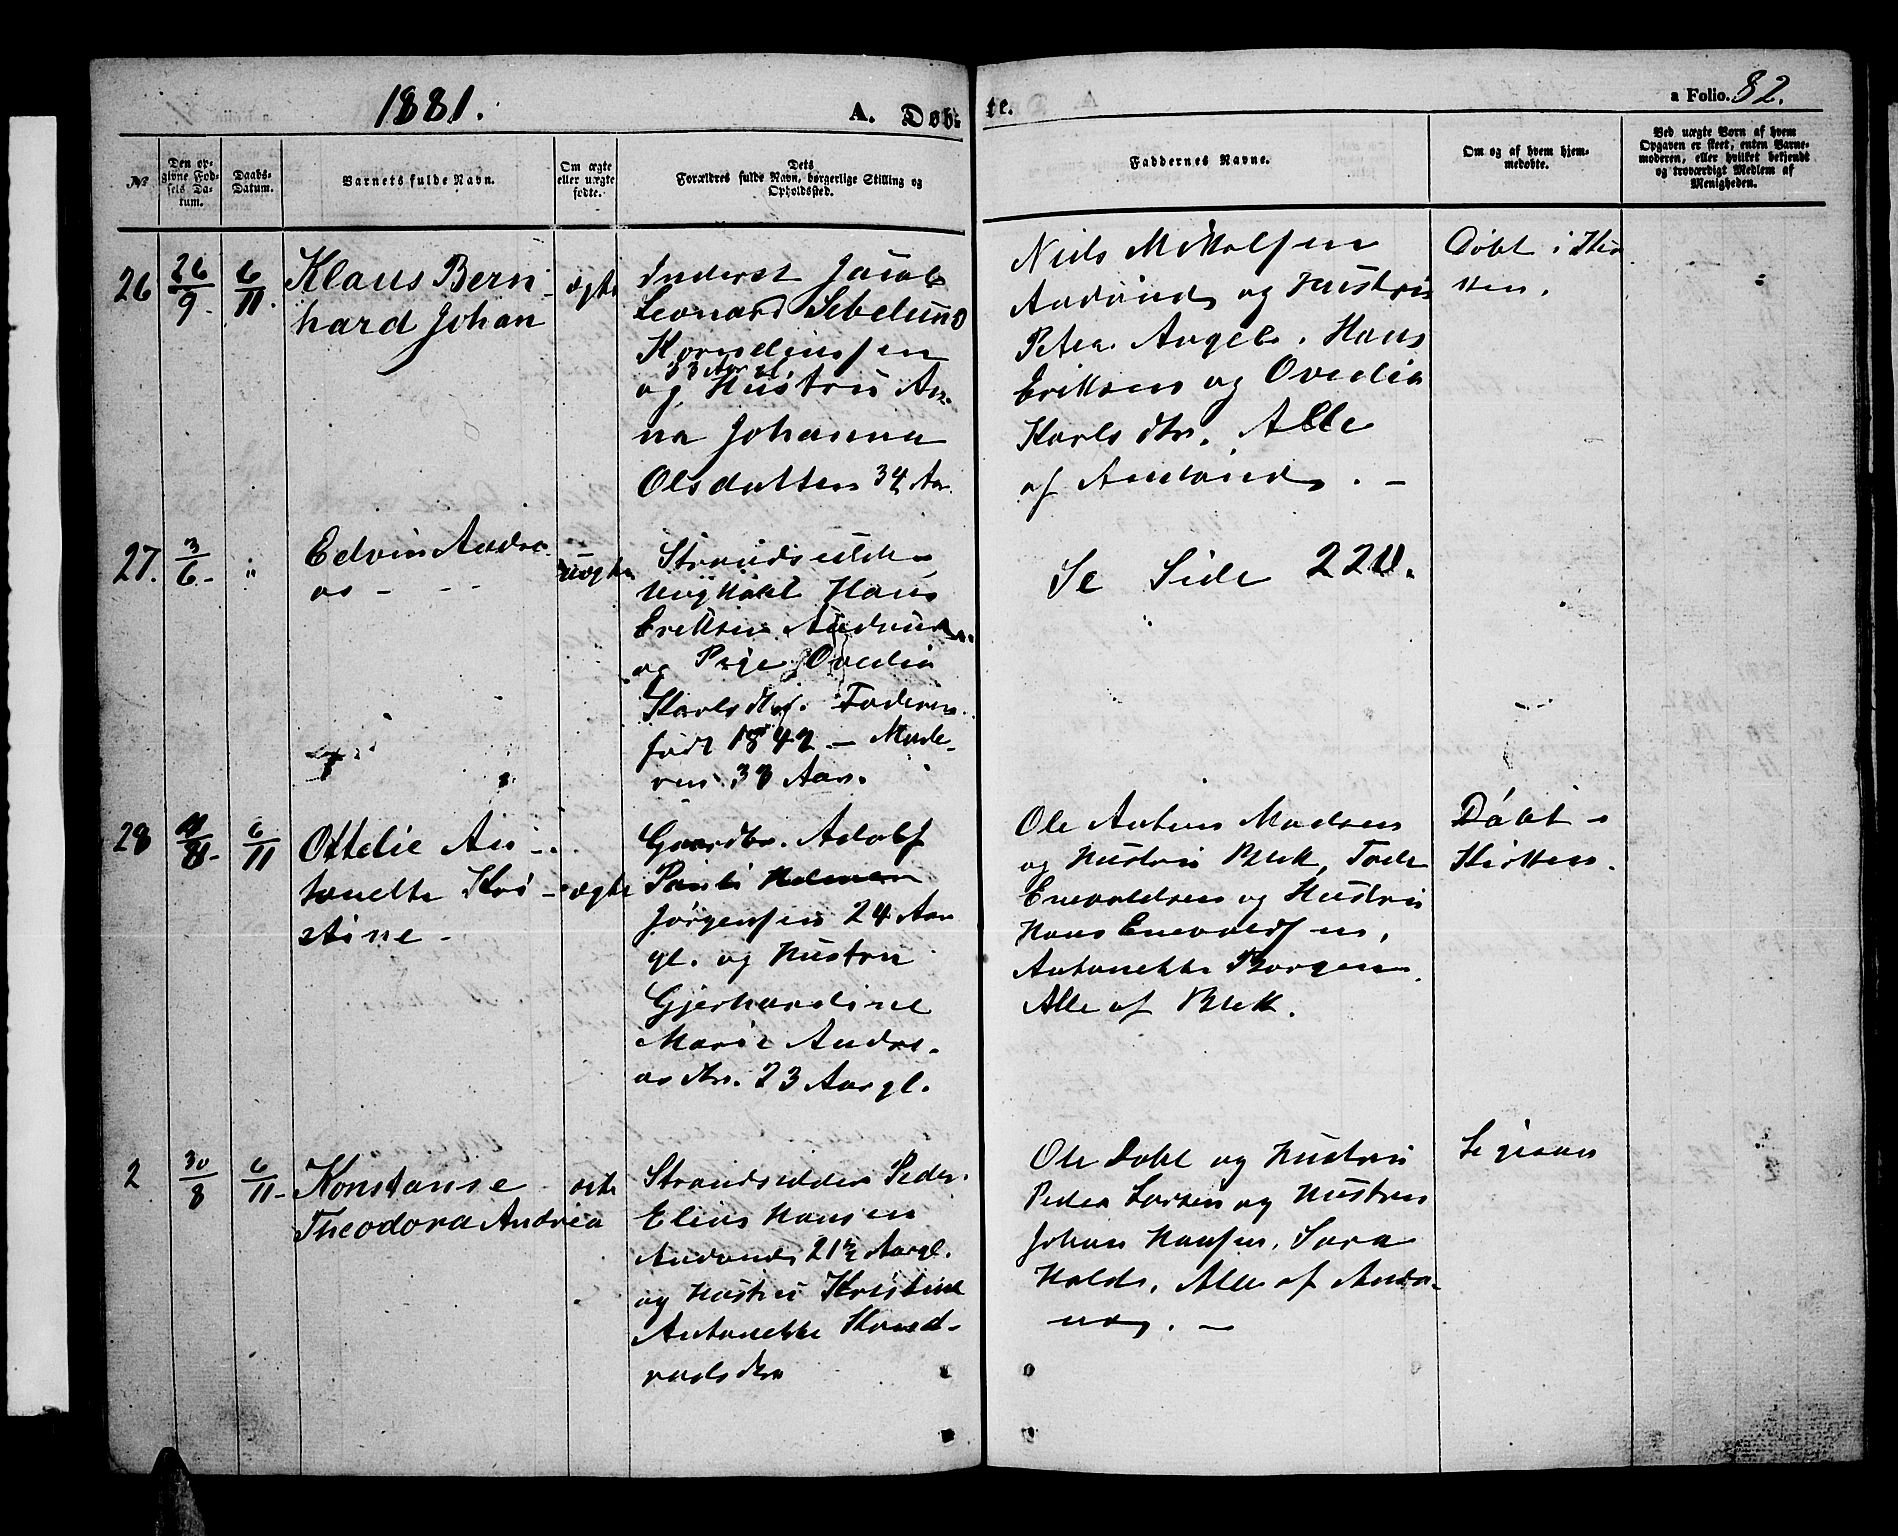 1881.
A. Døb-
te.
a Folio. 82.
No
Den op-
givne Fød-
sels Da-
tum.
Daabs-
Datum.
Barnets fulde Navn.
Om ægte
eller uægte
fødte.
Dets
Forældres fulde Navn, borgerlige Stilling og
Opholdssted.
Faddernes Navne.
Om og af hvem hjem-
medøbte.
Ved uægte Børn af hvem
Opgaven er skeet, enten Barne-
moderen, eller hvilket bekjendt
og troværdigt Medlem af
Menigheden.
26
26/9.
6/11.
Klaus Bern-
hard Johan
ægte
Inderst Jacob
Leonard Sebelund
Kornelinssen
33 Aar gl
og Hustru An-
na Johanna
Olsdatter 34 Aar
Niels Mikkelsen
og Hustru
Peter Angel. Hans
Eriksen og Ovedia
Karlsdtr. Alle
af
Døbt i Kir
ken.
27.
3/6.
"
Edvin Andre
as
uægte
Strandsidder
Hans
Eriksen
og Pige Ovedia
Karlsdtr. Faderen
født 1842 - Mode-
ren 33 Aar.
Se Side 220.
28
6/11
Ottelie An-
tonette Kri-
stine
ægte
Gaardbr. Adolf
Jørgensen 24 Aar
gl. og Hustru
Gjerhardine
Marie Andre-
asdtr. 23 Aar gl.
Ole Anton Madsen
og Hustru Blek,
Enevoldsen og Hustru
Hans Enevoldsen,
Antonette Borgen
Alle af Blek.
Døbt i
Kirken.
2
30/8
6/11
Konstanse
Theodora Andrea
ægte
Strandsidder Peder
Elias Hansen
21½ Aar gl.
og Hustru Kristine
Antonette Kond-
radsdtr
Ole Dahl og Hustru
Peder Larsen og Hustru
Johan Hansen, Sara
Alle af